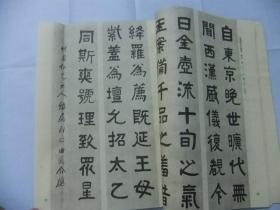 自東京晚世曠代無
聞西漢威儀復覩今
日金壺流十旬之氣
玉案備千品之羞借
綺羅為薦既延王母
紫蓋為壇允招太乙
同斯奭號理致眾星